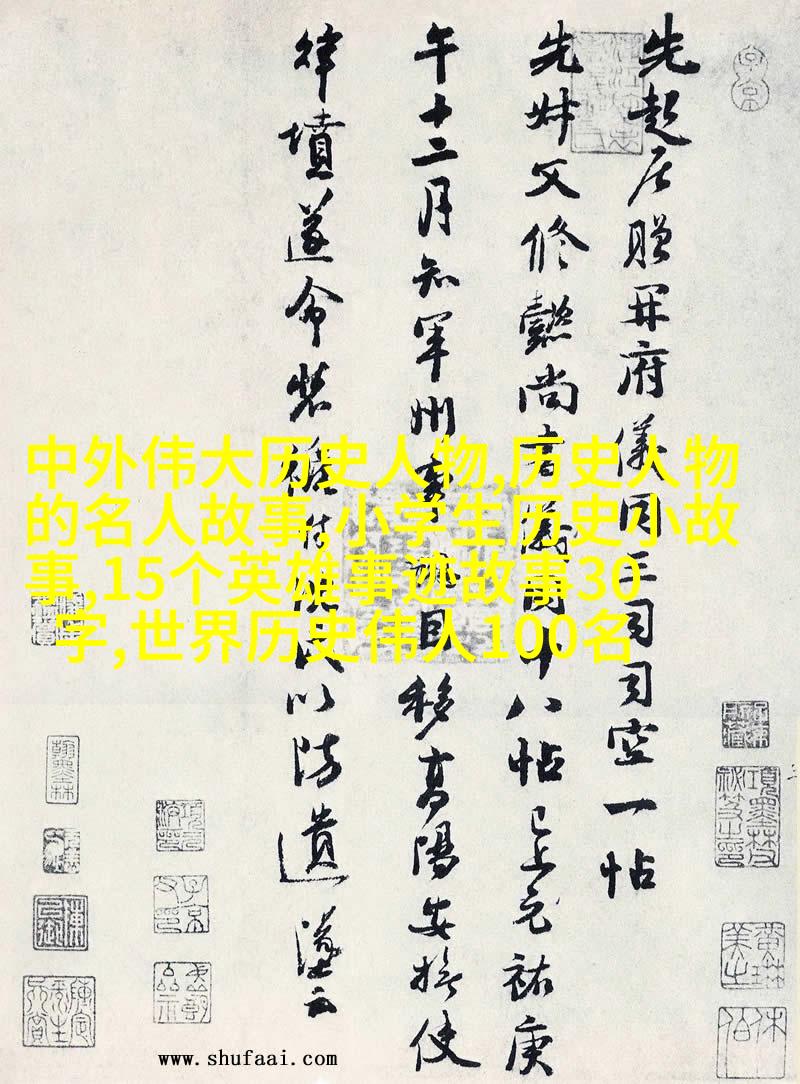 先起居贈開府儀同三司司空一帖
先父修懿尚書十八帖已上元祐庚
午十二月知軍州事目移高陽安撫使
律墳遂命裝以防遺墜云
中外伟大历史人物,历史人物
的名人故事,小学生历史小故
事,15个英雄事迹故事30
字,世界历史伟人100名
www.shufaai.com